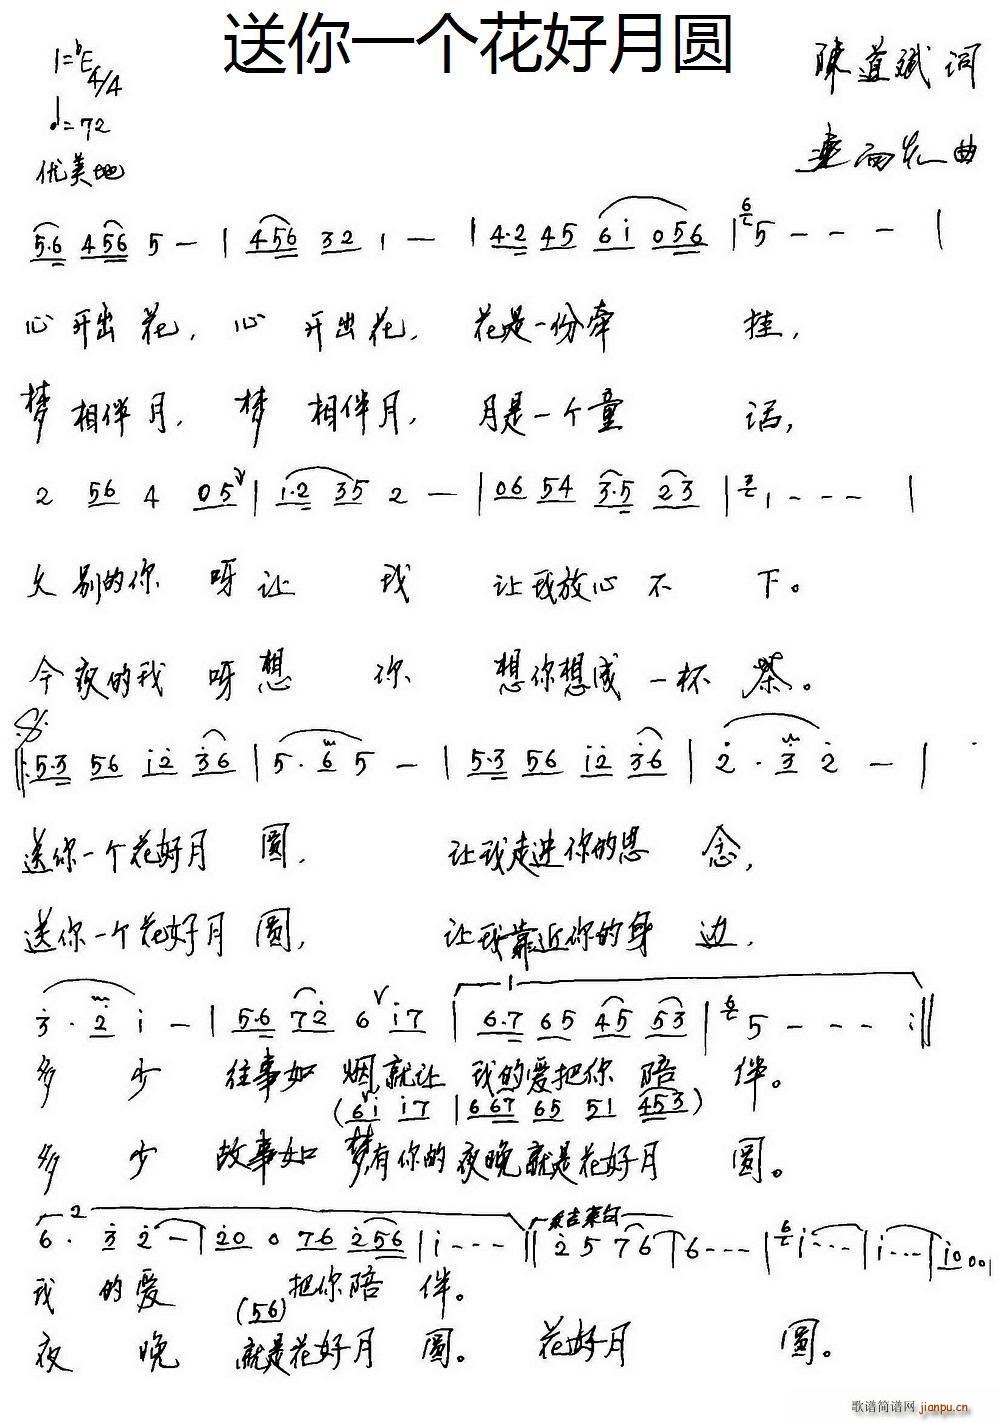 送你一个花好月圆
1=♭E 4/4
陈道斌 词
♩=72
曲
优美地
5·6 456 5 — | 456 32 1 — | 4·2 45 6i 056 | 5 - - - |
心开出花, 心开出花, 花是一份牵挂,
梦相伴月, 梦相伴月, 月是一个童话,
2 56 4 05 | 1·2 35 2 — | 06 54 3·5 23 | 1 - - - |
久别的你呀让我让我放心不下。
今夜的我呀想你想你想成一杯茶。
5·3 56 i2 36 | 5·6 5 — | 5·3 56 i2 36 | 2·3 2 — |
送你一个花好月圆, 让我走进你的思念,
送你一个花好月圆, 让我靠近你的身边,
3·2 i — | 5·6 72 6 i7 | 6·7 65 45 53 | 5 - - - :||
多少往事如烟就让我的爱把你陪伴。
(6i i7 | 667 65 51 453)
多少故事如梦有你的夜晚就是花好月圆。
6· 3 2 — | 20 0 76 256 | i - - - || 2 5 76 | 6 - - - | i - - - | i - - - | i0 00 |
我的爱把你陪伴。
(56)
夜晚就是花好月圆。 花好月圆。
歌谱简谱网 jianpu.cn